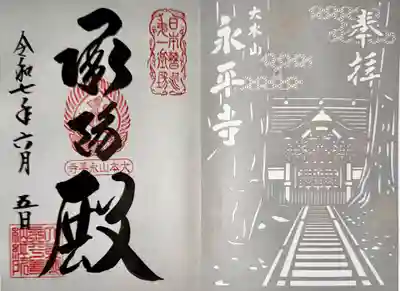 奉拝
大本山
永平寺
日本曹洞
第一道場
承陽殿
大本山永平寺
令和七年六月五日